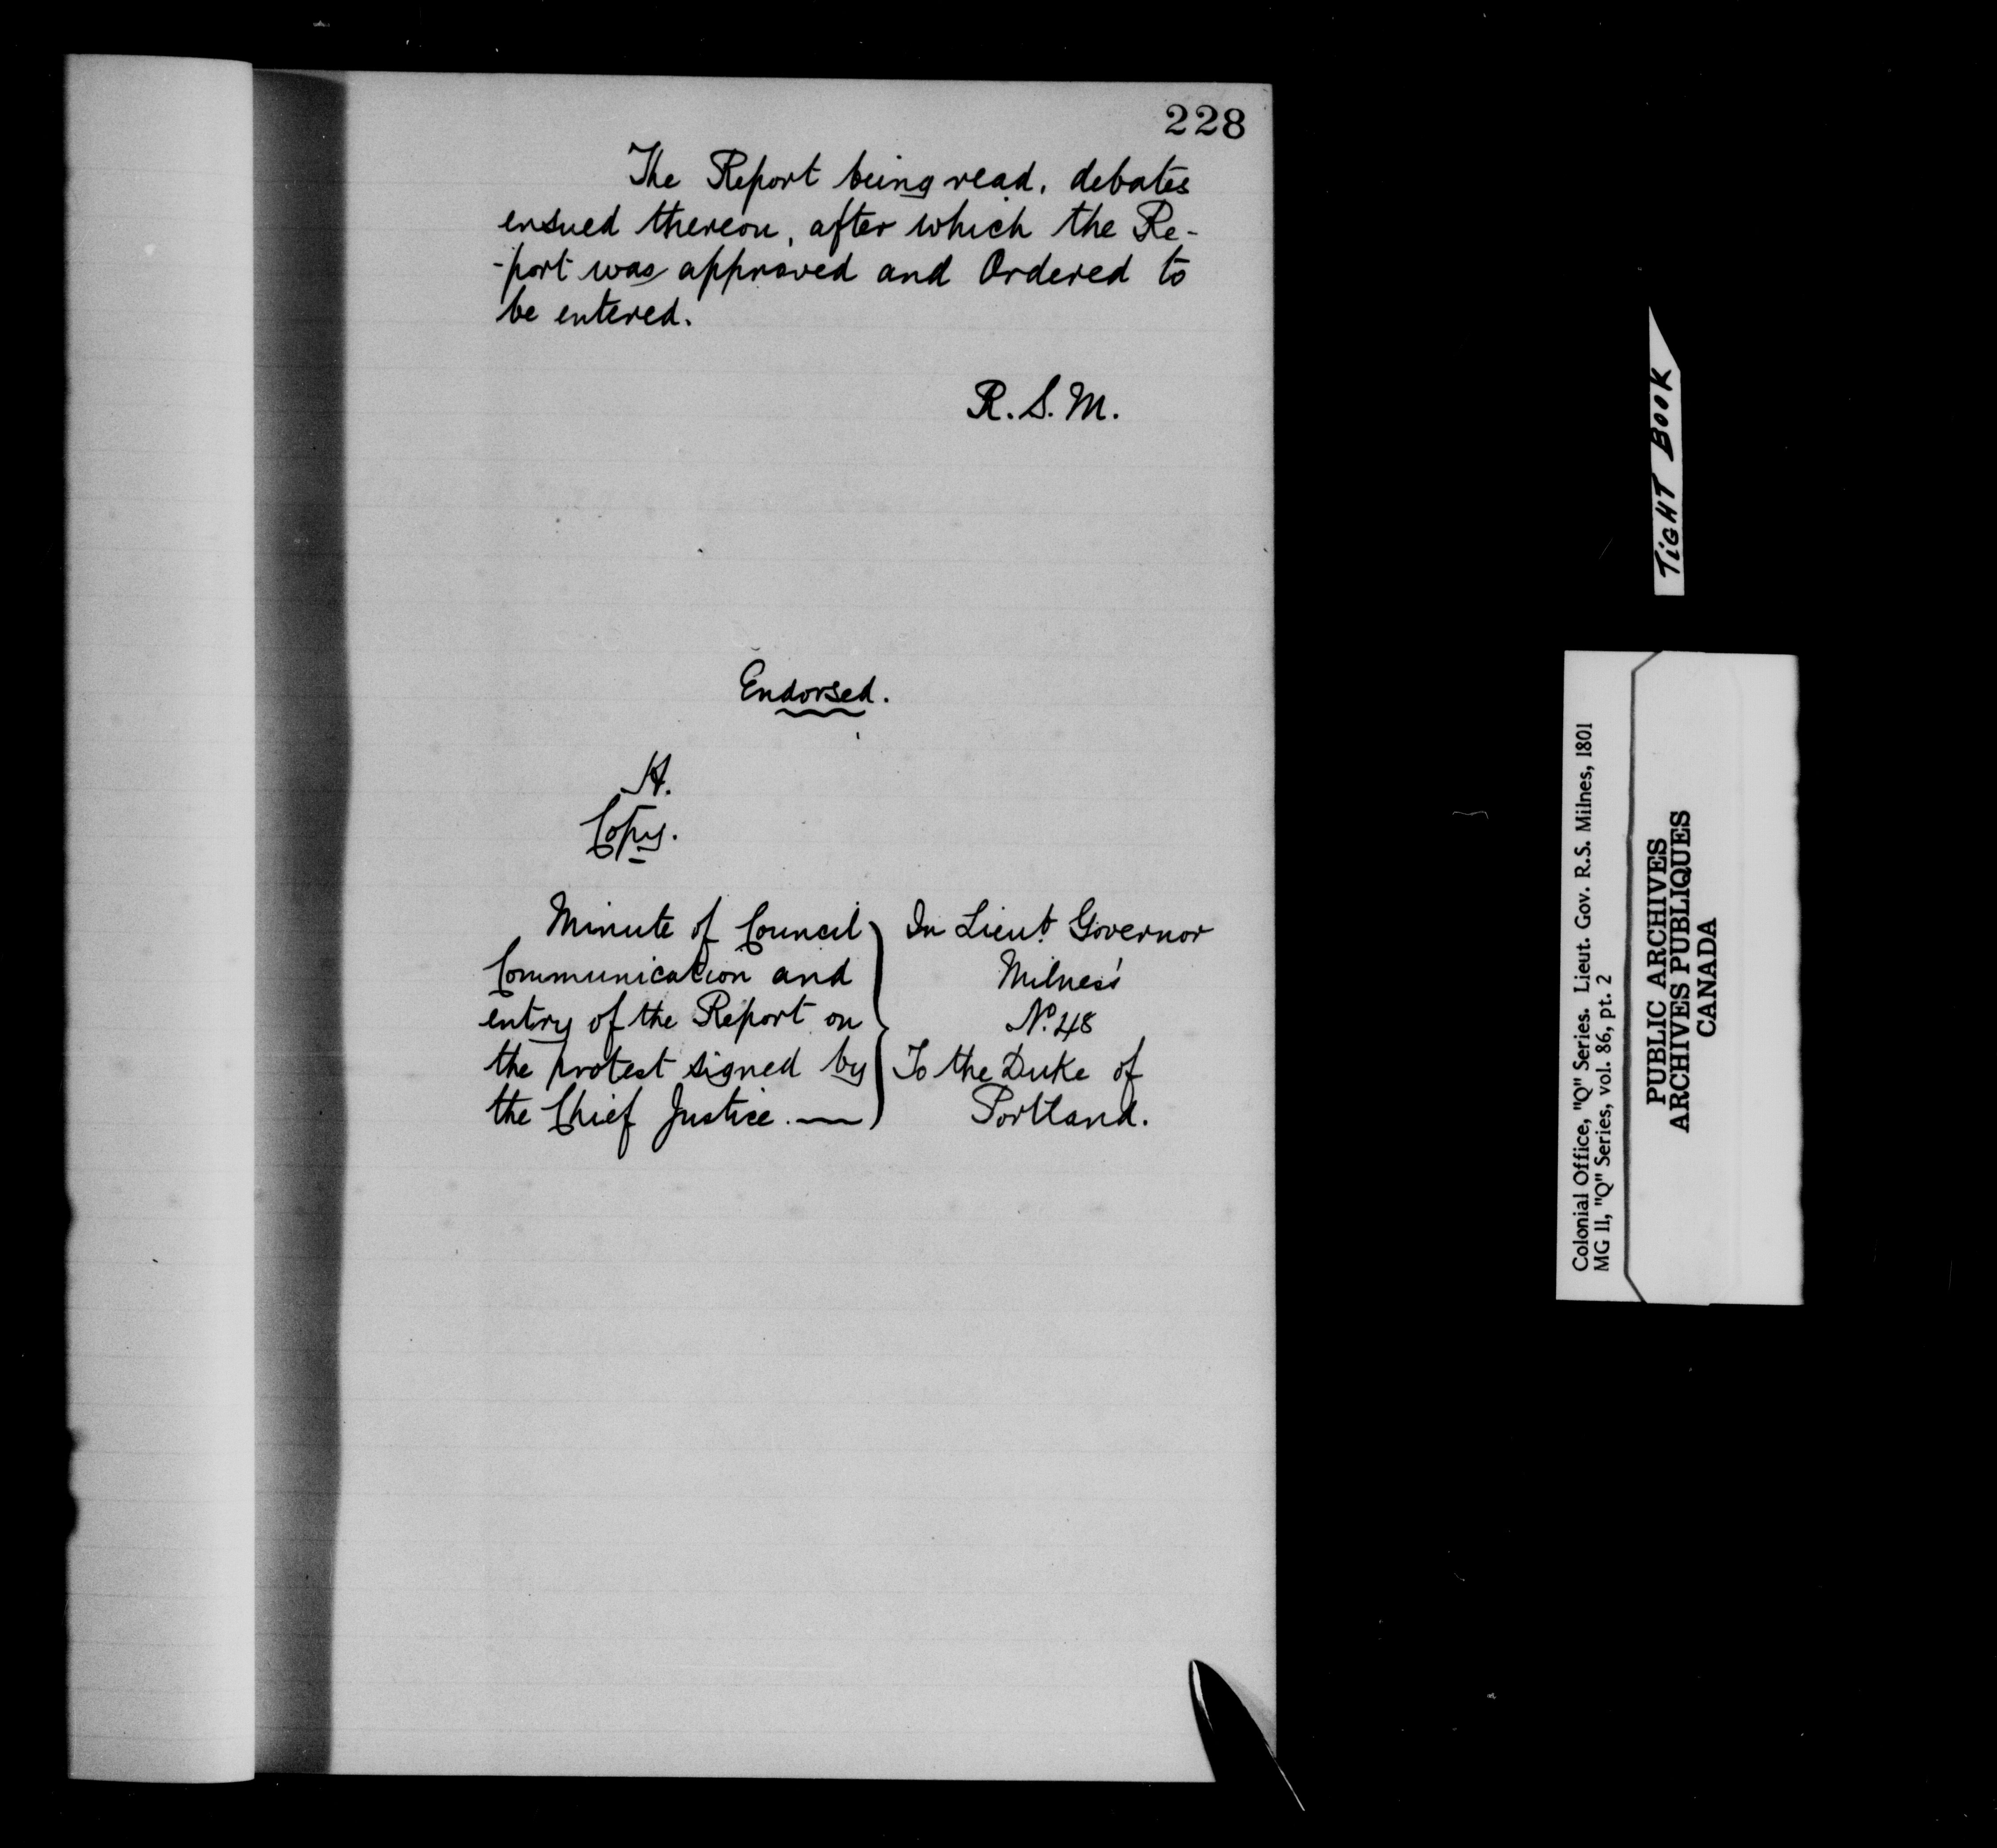 228
The Report being read, debates
ensued thereon, after which the Re-
-port was approved and Ordered to
be entered.
R. S. M.
Endorsed.
H.
Copy.
Minute of Council
Communication and
entry of the Report on
the protest signed by
the Chief Justice. —
In Lieut. Governor
Milnes's
No. 48
To the Duke of
Portland.
TiGHT BOOK
Colonial Office, "Q" Series. Lieut. Gov. R.S. Milnes, 1801
MG 11, "Q" Series, vol. 86, pt. 2
PUBLIC ARCHIVES
ARCHIVES PUBLIQUES
CANADA